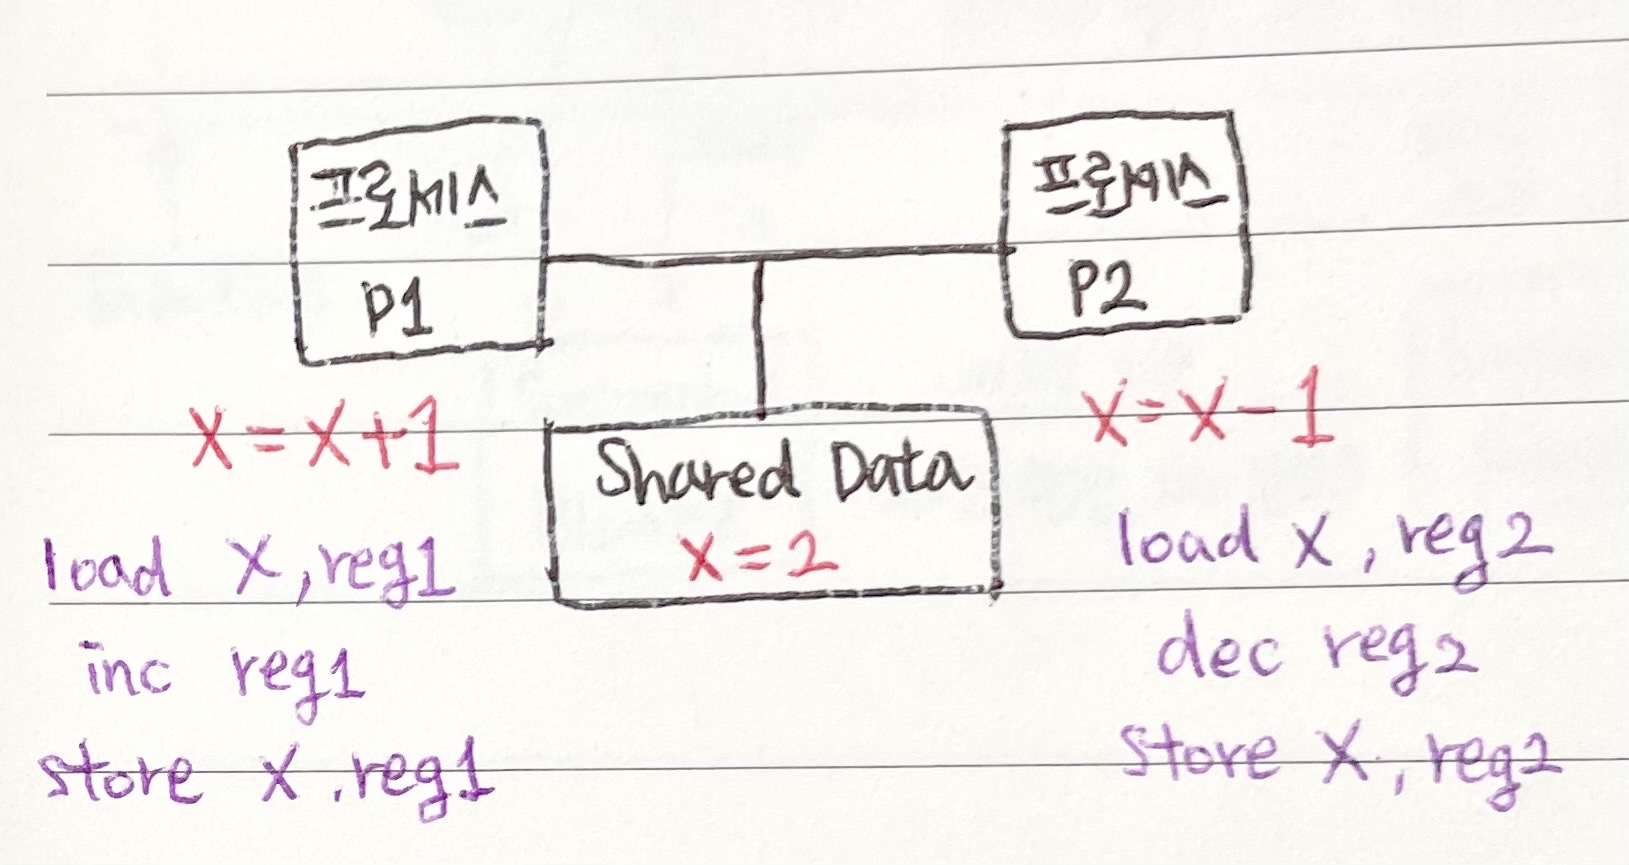 프로세스
P1
프로세스
P2
X=X+1
Shared Data
X=2
X=X-1
load X,reg1
inc reg1
store X,reg1
load X,reg2
dec reg2
store X,reg2